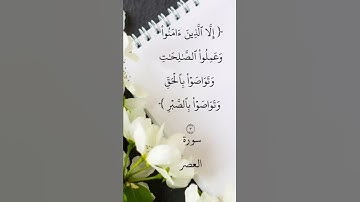 ﴿ إِلَّا ٱلَّذِينَ ءَامَنُوا۟
وَعَمِلُوا۟ ٱلصَّٰلِحَٰتِ
وَتَوَاصَوْا۟ بِٱلْحَقِّ
وَتَوَاصَوْا۟ بِٱلصَّبْرِ ﴾
٣
سورة
العصر